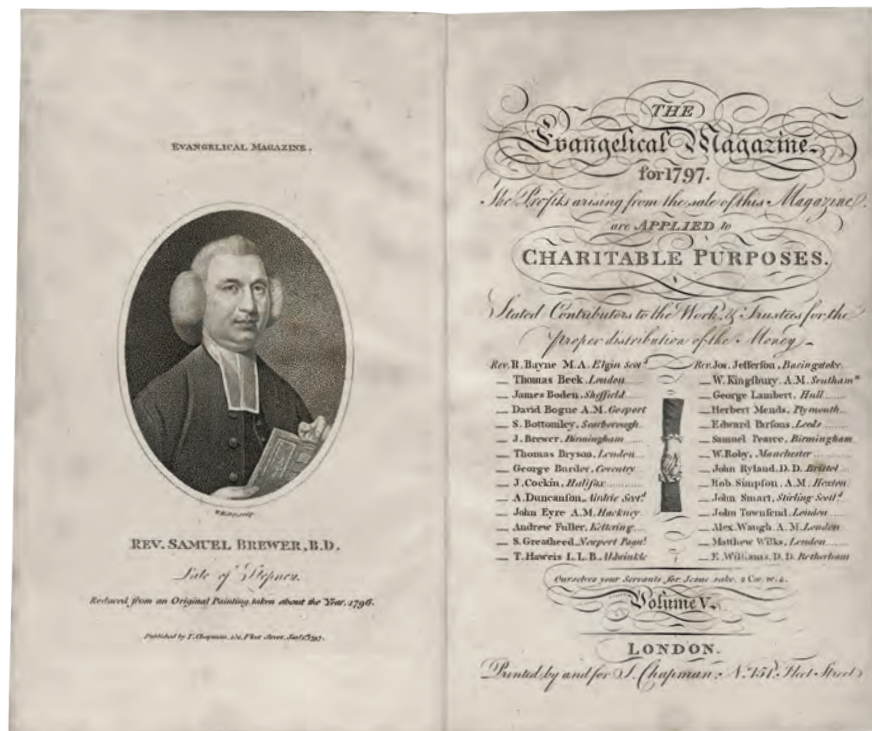 EVANGELICAL MAGAZINE.
REV. SAMUEL BREWER, B.D.
Late of Stepney.
Reduced from an Original Painting, taken about the Year, 1796.
Published by T. Chapman, 151, Fleet Street, Jan.1.1797.
THE
Evangelical Magazine
for 1797.
The Profits arising from the sale of this Magazine,
are APPLIED to
CHARITABLE PURPOSES.
Stated Contributors to the Work, & Trustees for the
proper distribution of the Money
Rev. R. Bayne M.A. Elgin Scotd.
Thomas Beck, London
James Boden, Sheffield
David Bogue A.M. Gosport
S. Bottomley, Scarborough
J. Brewer, Birmingham
Thomas Bryson, London
George Burder, Coventry
J. Cockin, Halifax
A. Duncanson, Airdrie Scotd.
John Eyre A.M. Hackney
Andrew Fuller, Kettering
S. Greatheed, Newport Pagnl.
T. Haweis L.L.B. Aldwinkle
Rev. Jos. Jefferson, Basingstoke
W. Kingsbury, A.M. Southamn
George Lambert, Hull
Herbert Mends, Plymouth
Edward Parsons, Leeds
Samuel Pearce, Birmingham
W. Roby, Manchester
John Ryland, D.D. Bristol
Rob. Simpson, A.M. Hoxton
John Smart, Stirling Scotld.
John Townsend, London
Alex. Waugh A.M. London
Matthew Wilks, London
E. Williams, D.D. Rotherham
Ourselves your Servants for Jesus sake. 2 Cor. iv. 5.
Volume V.
LONDON.
Printed by and for T. Chapman, No. 151, Fleet Street